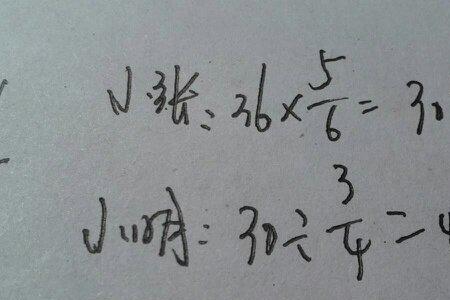 小张:36×5/6=30
小明:30÷3/4=4